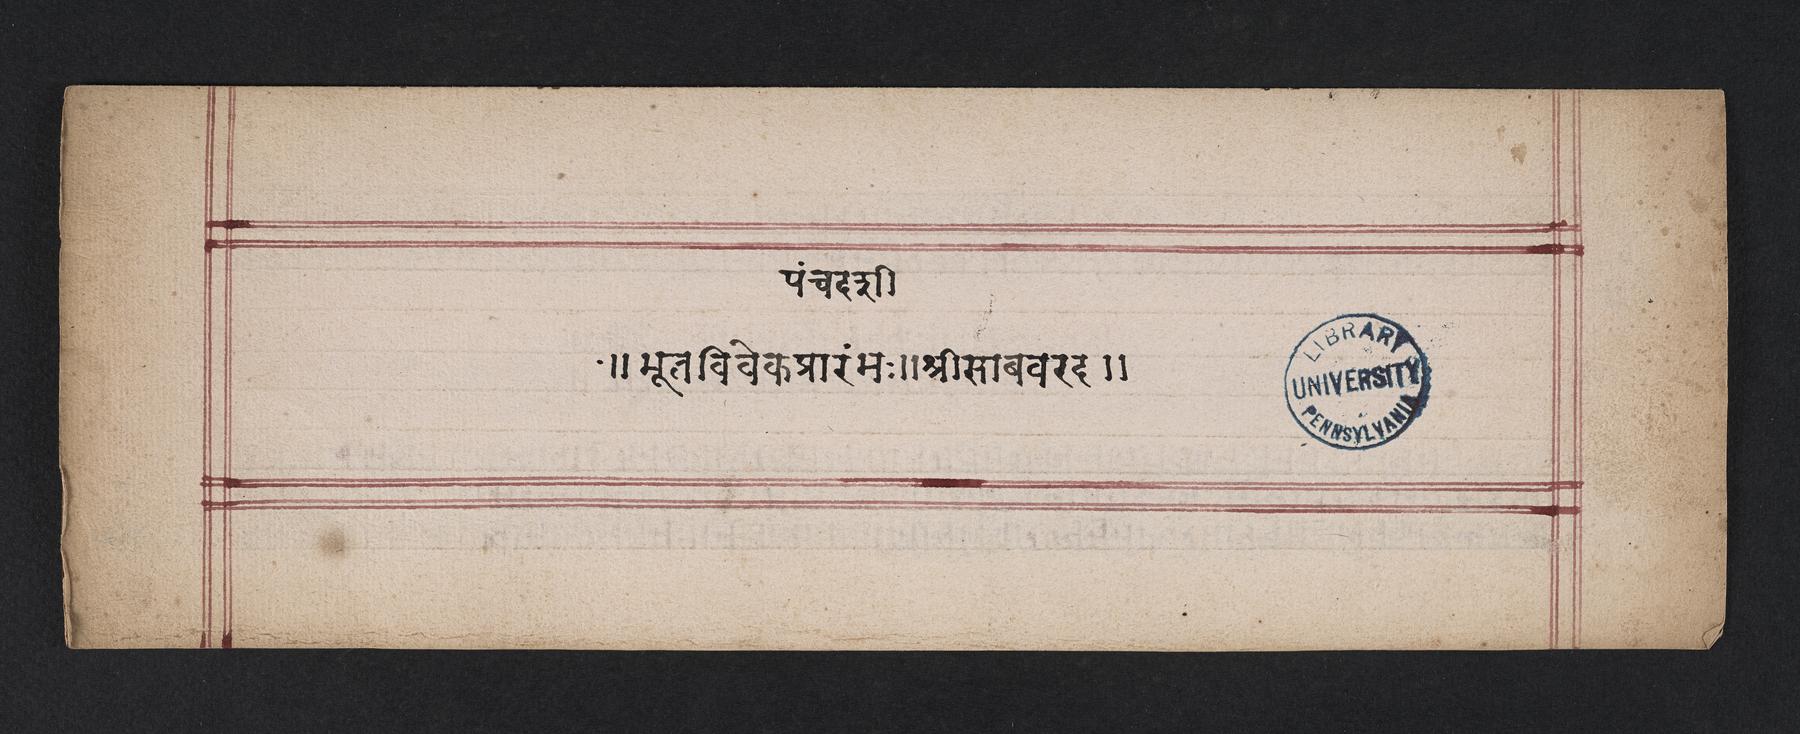 पंचदशी
॥ भूतविवेकप्रारंभः ॥ श्रीसाबवरद ॥
LIBRARY
UNIVERSITY
PENNSYLVANIA